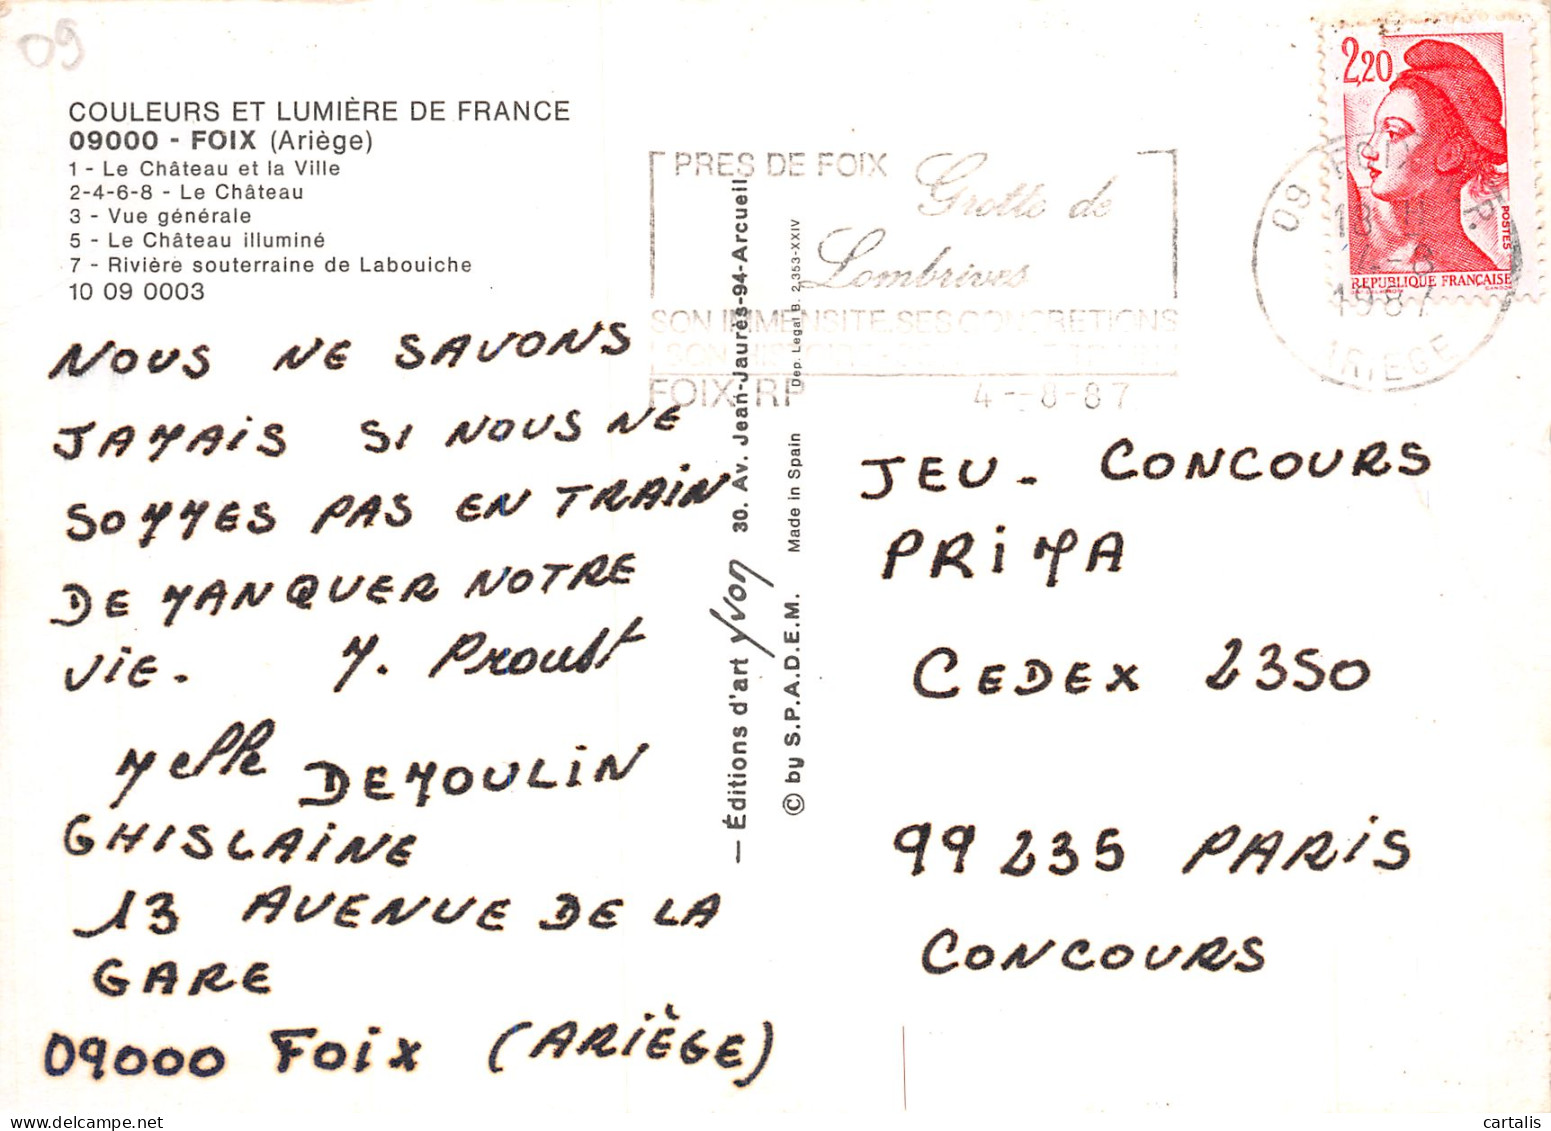 09
COULEURS ET LUMIÈRE DE FRANCE
09000 - FOIX (Ariège)
1 - Le Château et la Ville
2-4-6-8 - Le Château
3 - Vue générale
5 - Le Château illuminé
7 - Rivière souterraine de Labouiche
10 09 0003
NOUS NE SAVONS
JAMAIS SI NOUS NE
SOMMES PAS EN TRAIN
DE MANQUER NOTRE
VIE. M. Proust
Melle DEMOULIN
GHISLAINE
13 AVENUE DE LA
GARE
09000 FOIX (ARIÈGE)
— Éditions d'art yvon 30. Av. Jean-Jaurès-94-Arcueil
© by S.P.A.D.E.M. Made in Spain Dep. Legal B. 2.353-XXIV
PRES DE FOIX
Grotte de
Lombrives
SON IMMENSITE.SES CONCRETIONS
SON
FOIX RP 4-8-87
2,20
POSTES
REPUBLIQUE FRANÇAISE
09 FOIX R.P.
18 H
4-8
1987
ARIEGE
JEU - CONCOURS
PRIMA
CEDEX 2350
99 235 PARIS
CONCOURS
cartalis